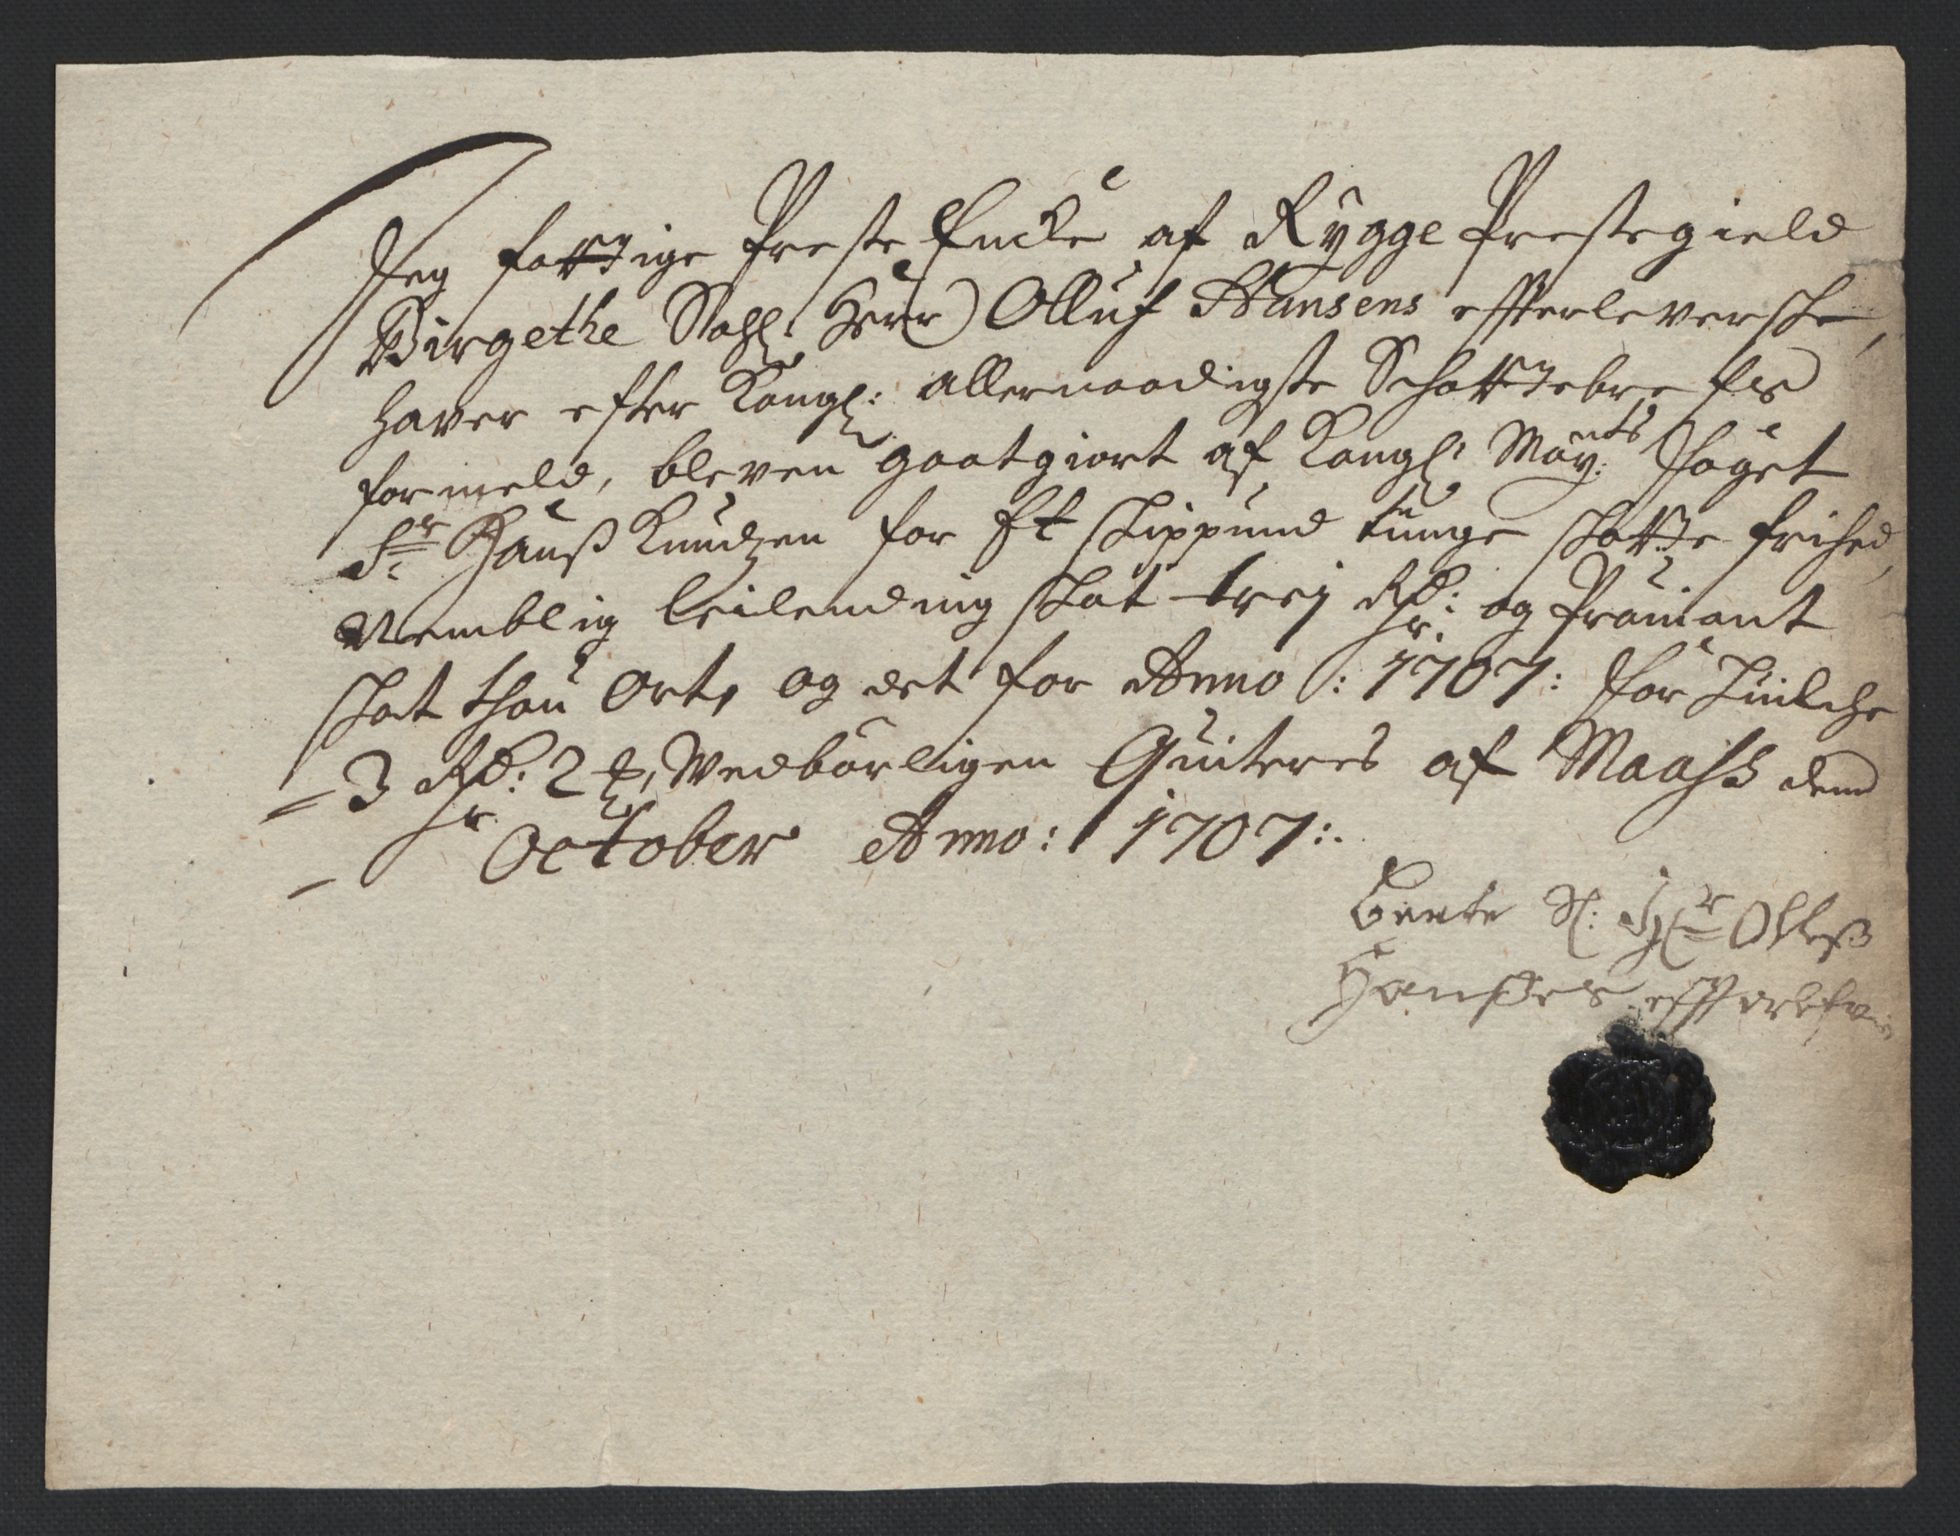 Jeg fattige Preste Encke af Rygge Prestegield
Birgethe Sahl: Herr Olluf Hansens effterleverske,
haver efter Kongl: allernaadigste Schattebrefs
formeld, bleven gaatgiort af Kongl: May:ts Foget
Sr Hanß Knudzen for Et skippund tunge skatte frihed,
Nemblig leilending skat trej Rdr: og Proviant
skat thou Ort, og det for Anno: 1707: for huilche
3 Rdr: 2 , Wedbørligen Quiteres af Maaß dend
October Anno: 1707:
Berte Sl: Hr Olleß
Hanßes effterlefv